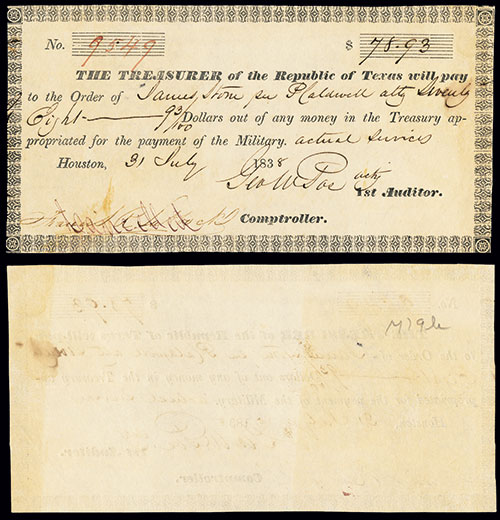 No. 9549 $ 78.93
THE TREASURER of the Republic of Texas will pay
to the Order of James Stone per P Caldwell atty Seventy
Eight — 93/100 Dollars out of any money in the Treasury ap-
propriated for the payment of the Military. actual services
Houston, 31 July 1838
Geo W Poe actg
1st Auditor.
Comptroller.